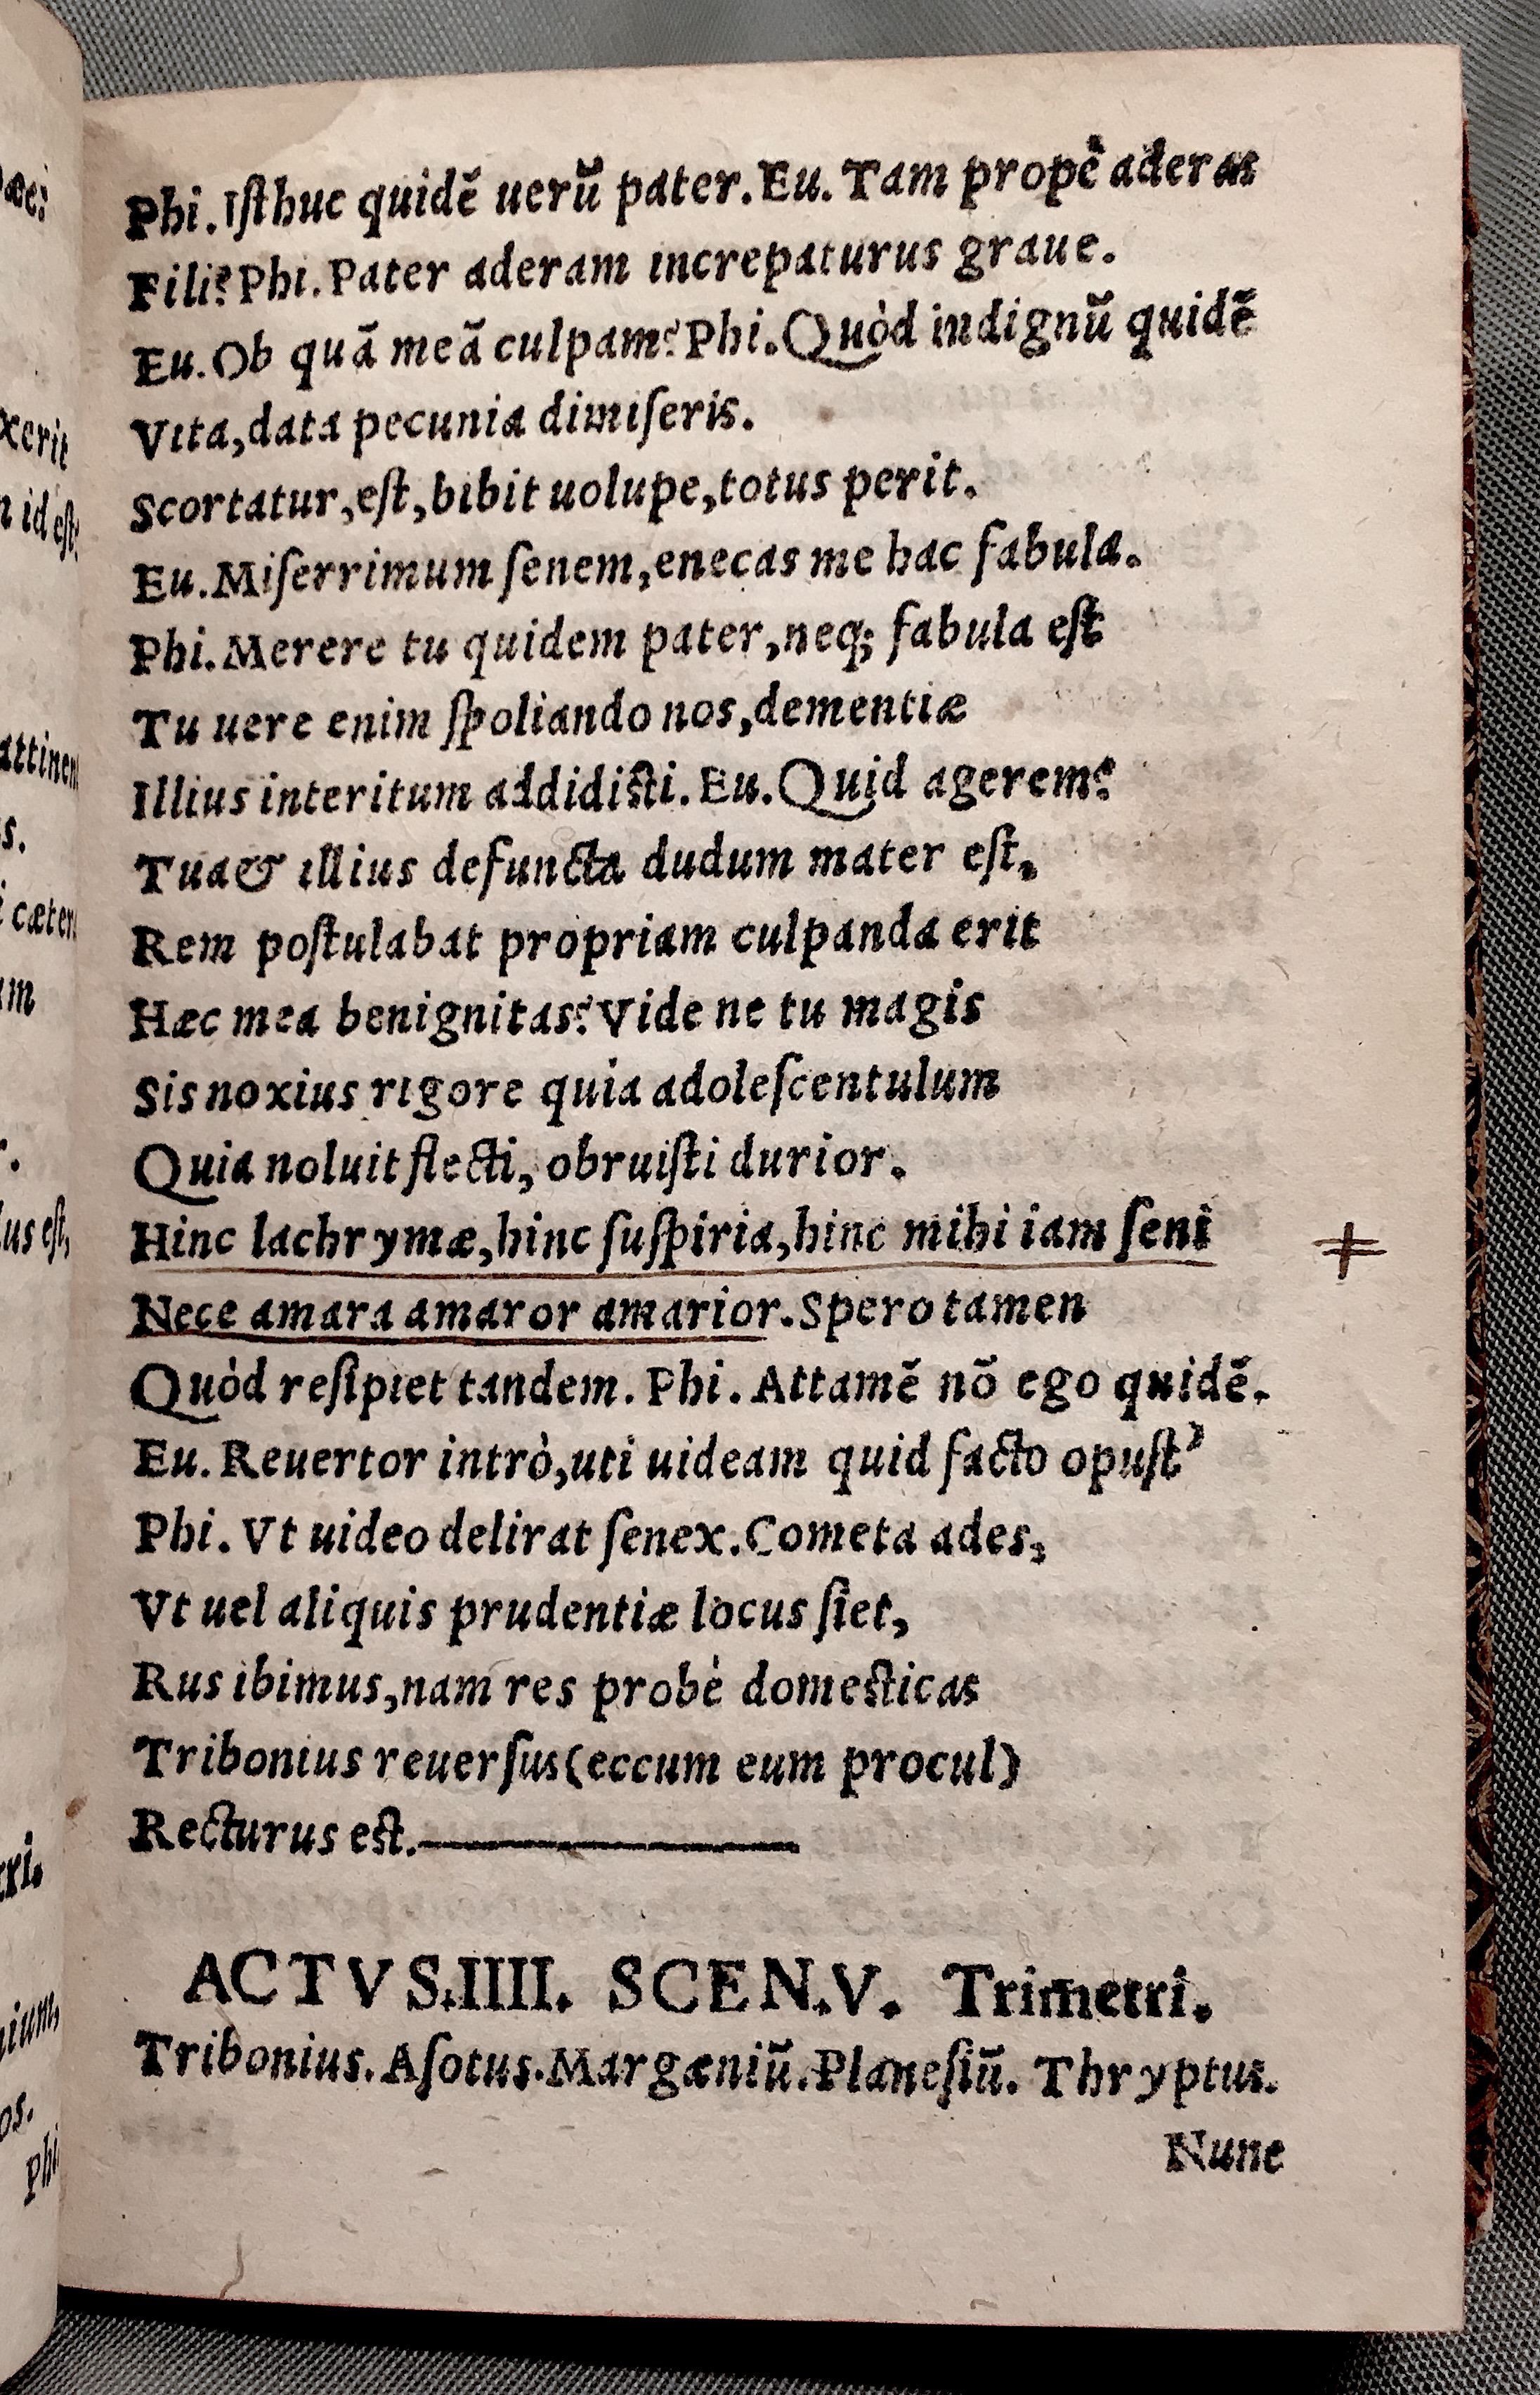 Phi. Iſthuc quidē uerũ pater. Eu. Tam propè aderas
Fili? Phi. Pater aderam increpaturus graue.
Eu. Ob quã meã culpam? Phi. Quòd indignũ quidē
Vita, data pecunia dimiſeris.
Scortatur, eſt, bibit uolupe, totus perit.
Eu. Miſerrimum ſenem, enecas me hac fabula.
Phi. Merere tu quidem pater, neq; fabula eſt
Tu uere enim ſpoliando nos, dementiæ
Illius interitum addidiſti. Eu. Quid agerem?
Tua & illius defuncta dudum mater eſt,
Rem poſtulabat propriam culpanda erit
Hæc mea benignitas? Vide ne tu magis
Sis noxius rigore quia adoleſcentulum
Quia noluit flecti, obruiſti durior.
Hinc lachrymæ, hinc ſuſpiria, hinc mihi iam ſeni
Nece amara amaror amarior. Spero tamen
Quòd reſipiet tandem. Phi. Attamē nō ego quidē.
Eu. Reuertor intrò, uti uideam quid facto opuſt'
Phi. Vt uideo delirat ſenex. Cometa ades,
Vt uel aliquis prudentiæ locus ſiet,
Rus ibimus, nam res probè domeſticas
Tribonius reuerſus (eccum eum procul)
Recturus eſt.
ACTVS. IIII. SCEN. V. Trimetri.
Tribonius. Aſotus. Margæniũ. Planeſiũ. Thryptus.
Nunc